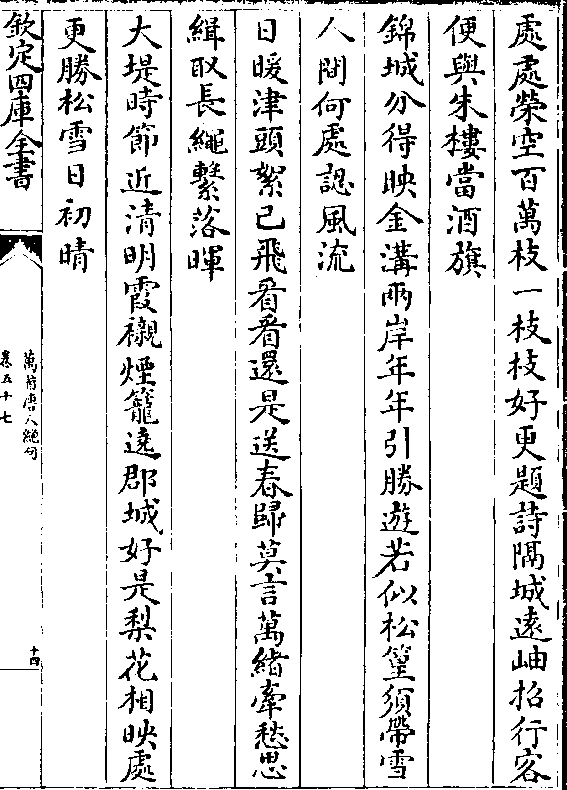 處處榮空百萬枝一枝枝好更題詩隔城遠岫招行客
便與朱樓當酒旗
錦城分得映金溝兩岸年年引勝遊若似松篁須帶雪
人間何處認風流
日暖津頭絮已飛看看還是送春歸莫言萬緒牽愁思
緝取長繩繫落暉
大堤時節近清明霞襯煙籠遶郡城好是梨花相映處
更勝松雪日初晴
欽定四庫全書
萬首唐人絶句
卷五十七
十四